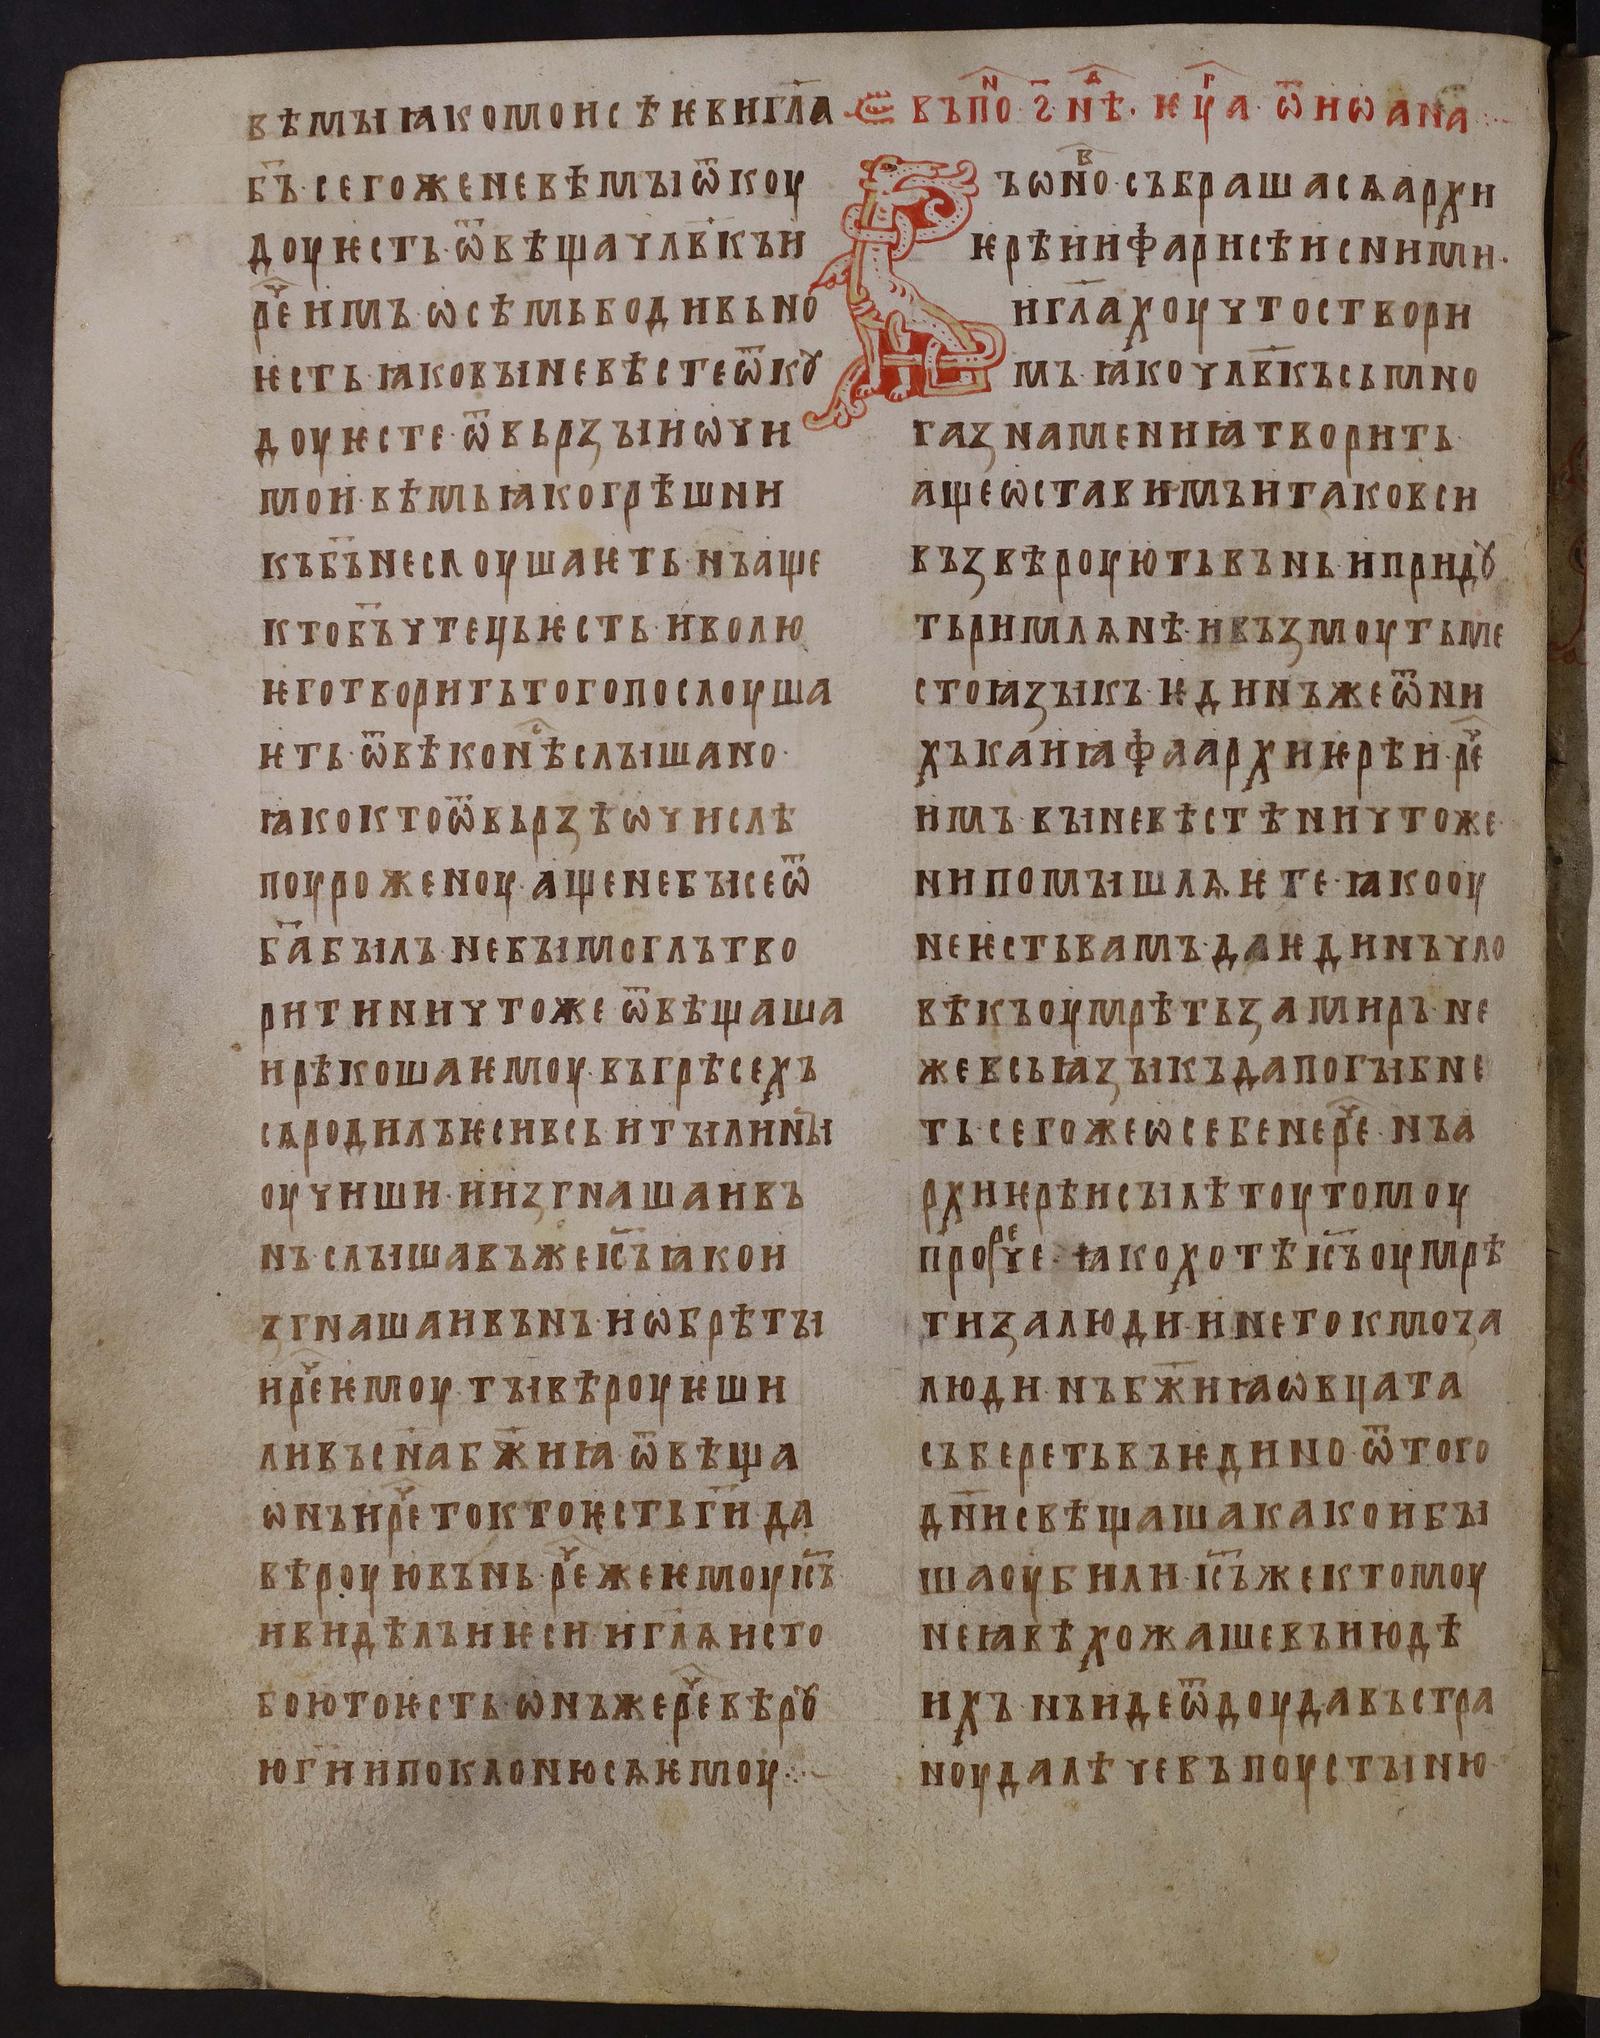 вѣмыꙗкомоисѣѥвигл҃а
бъ҃·сегоженевѣмыѿкоу
доуѥсть·ѿвѣщачлв҃къи
реⷱ҇имъ·ѡсѣмьбодивьно
ѥсть·ꙗковыневѣстеѿкꙋ
доуѥсте·ѿвьрзыиѡчи
мои·вѣмьꙗкогрѣшни
къбъ҃неслоушаѥть·нъаще
ктобъ҃чтецьѥсть·иволю
ѥготворитьтогопослоуша
ѥть·ѿвѣконⷭ҇ѣслышано·
ꙗкоктоѿвьрзѣѡчислѣ
поуроженоу·ащенебысеѿ
ба҃былъ·небымоглътво
ритиничтоже·ѿвѣщаша
ирѣкошаѥмоу·въгрѣсехъ
сѧродилъѥсивсь·итылины
оучиши·иизгнашаивъ
нъ·слышавъжеіс҃ъꙗкои
згнашаивънъ·иѡбрѣты
иреⷱ҇ѥмоу·тывѣроуѥши
ливъсн҃абж҃иꙗ·ѿвѣща
ѡнъиреⷱ҇токтоѥстьги҃·да
вѣроуювънь·реⷱ҇жеѥмоуіс҃ъ
ивидѣлъиѥси·иглѧ҃исто
боютоѥсть·ѡнъжереⷱ҇вѣрꙋ
юги҃ипоклонюсѧѥмоу·:·
Ѥвъпоⷩ҇·ѕ҃·нⷣѣ·ѥцⷢ҇а·ѿиѡана
ъѡноⷡ҇·събрашасѧархи
ѥрѣиифарисѣисними·
игл҃ахоучтоствори
мъ·ꙗкочлв҃късьмно
газнамениꙗтворить·
ащеѡставимъитаковси
възвѣроуютьвънь·ипридꙋ
тьримлѧнѣ·ивъзмоутьме
стоꙗзыкъ·ѥдинъжеѿни
хъкаиꙗфаархиѥрѣи·реⷱ҇
имъ·выневѣстѣничтоже·
нипомышлѧѥте·ꙗкооу
неѥстьвамъ·даѥдинъчло
вѣкъоумрѣтьзамиръ·не
жевсьꙗзыкъдапогыбне
ть·сегожеѡсебенереⷱ҇·нъа
рхиѥрѣисылѣтоутомоу
прорече·ꙗкохотѣіс҃ъоумрѣ
тизалюди·инетокмоза
люди·нъбж҃иꙗѡвцата
съберетьвъѥдино·ѿтого
дн҃исвѣщашакакоибы
шаоубили·іс҃ъжектомоу
неꙗвѣхожашевъиюдѣ
ихъ·нъидеѿдоудавъстра
ноудалѣчевъпоустыню·